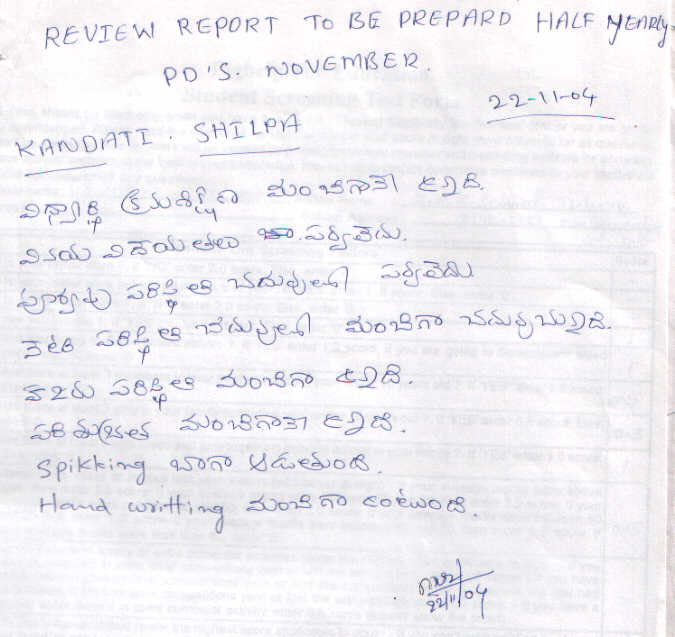 REVIEW REPORT TO BE PREPARD HALF YEARLY.
PD'S. NOVEMBER.
22-11-04
KANDATI. SHILPA
విద్యార్థి క్రమశిక్షణ మంచిగానే ఉన్నది.
వినయ విధేయతలు పర్వలేదు.
పూర్వపు పరిస్థితి చదువులో పర్వలేదు
నేటి పరిస్థితి చదువులో మంచిగా చదువుచున్నది.
హాజరు పరిస్థితి మంచిగా ఉన్నది.
పరిశుభ్రత మంచిగానే ఉన్నది.
Spikking బాగా ఆడుతుంది.
Hand writting మంచిగా ఉంటుంది.
22/11/04